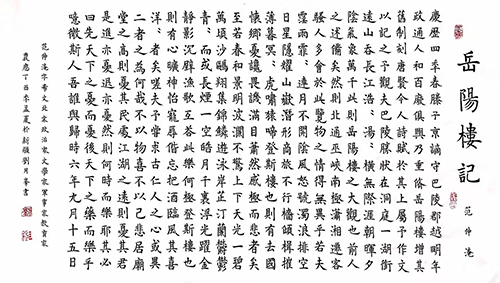 岳陽樓記
范仲淹
慶歷四季春滕子京謫守巴陵郡越明年
政通人和百廢俱興乃重脩岳陽樓增其
舊制刻唐賢今人詩賦於其上屬予作文
以記之予觀夫巴陵勝狀在洞庭一湖銜
遠山吞長江浩、湯、橫無際涯朝暉夕
陰氣象萬千此則岳陽樓之大觀也前人
之述備矣然則北通巫峽南極瀟湘遷客
騷人多會於此覽物之情得無異乎若夫
霪雨霏、連月不開陰風怒號濁浪排空
日星隱耀山嶽潛形商旅不行檣傾楫摧
薄暮冥、虎嘯猿啼登斯樓也則有去國
懷鄉憂讒畏譏滿目蕭然感極而悲者矣
至若春和景明波瀾不驚上下天光一碧
萬頃沙鷗翔集錦鱗遊泳岸芷汀蘭鬱鬱
青、而或長煙一空皓月千里浮光躍金
靜影沉璧漁歌互答此樂何極登斯樓也
則有心曠神怡寵辱偕忘把酒臨風其喜
洋、者矣嗟夫予嘗求古仁人之心或異
二者之為何哉不以物喜不以己悲居廟
堂之高則憂其民處江湖之遠則憂其君
是進亦憂退亦憂然則何時而樂耶其必
曰先天下之憂而憂後天下之樂而樂乎
噫微斯人吾誰與歸時六年九月十五日
范仲淹字希文北宋政治家文學家軍事家教育家
歲應丁酉季孟夏於新疆劉月峯書